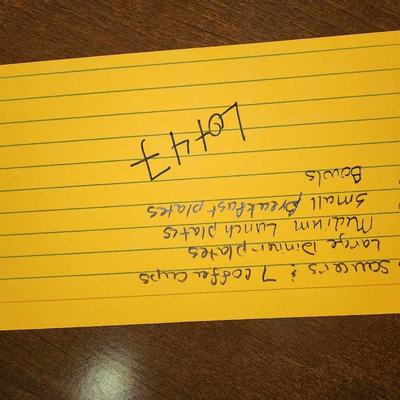 saucers & 7 coffee cups
Large Dinner plates
Medium Lunch plates
Small Breakfast plates
Bowls
Lot 47